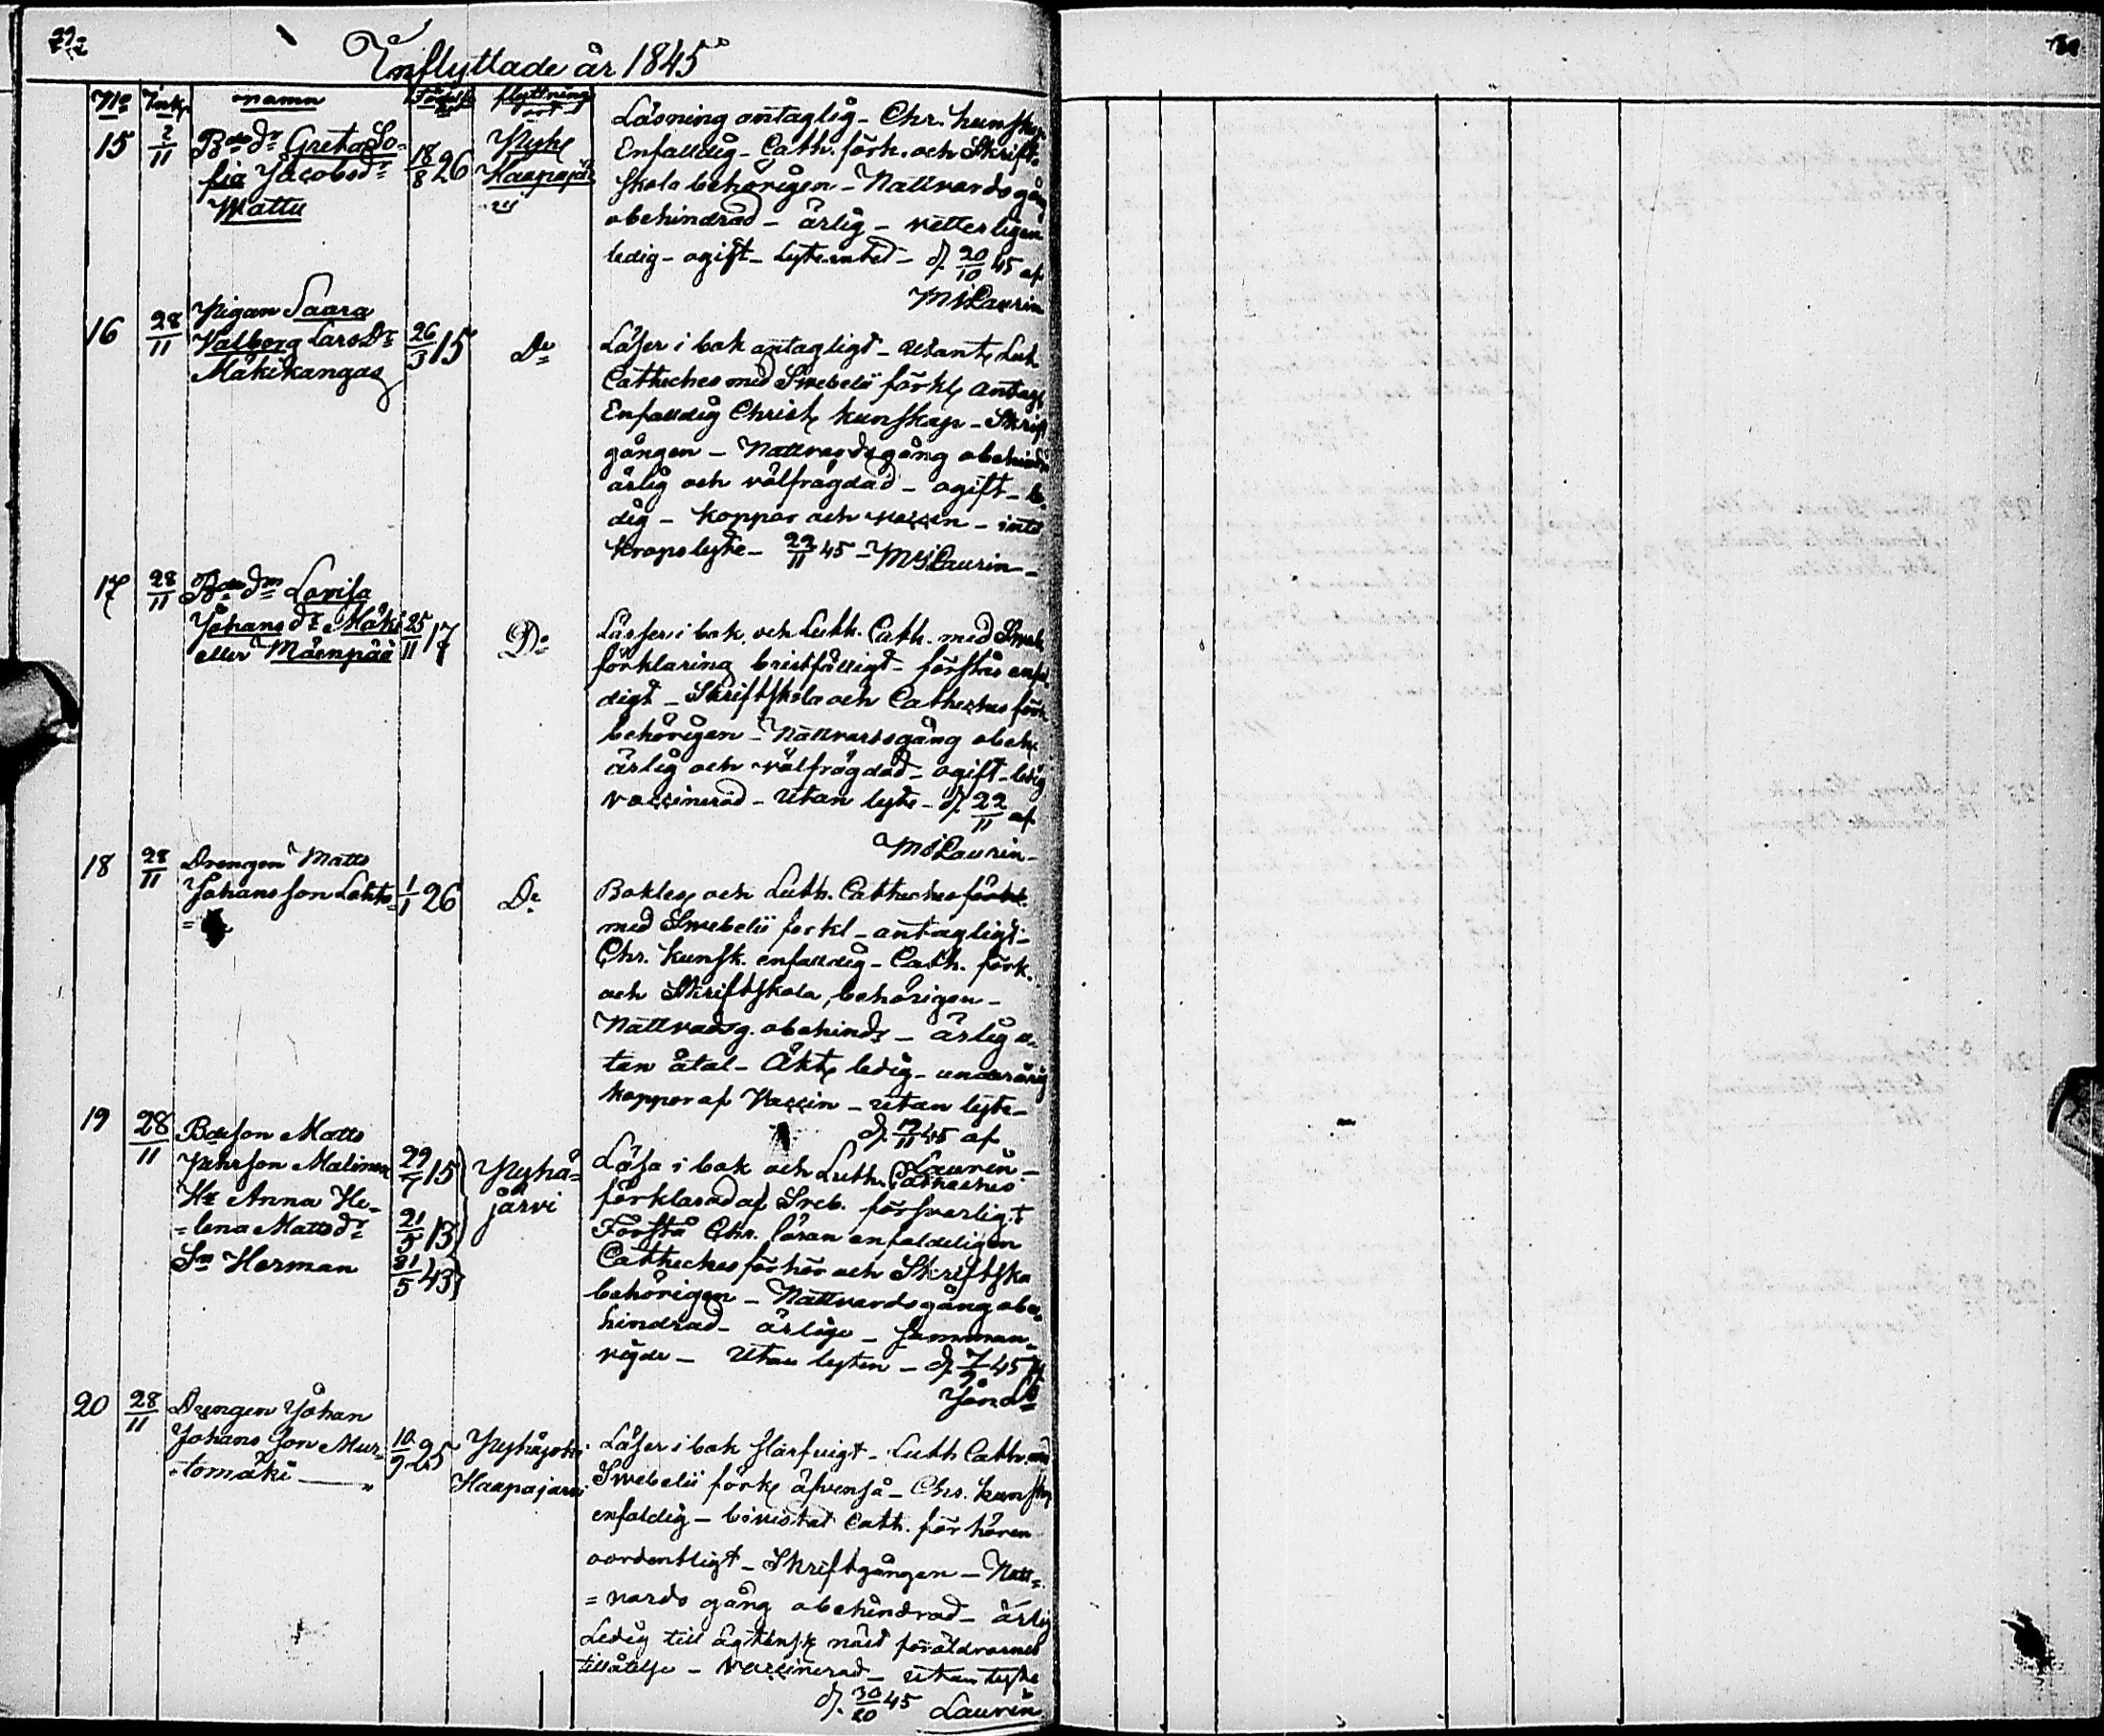 Inflyttade år 1845
No Ink. namn Födelse flyttnings ort
15 2/11 Bde Dr Greta So-
fia Jacobsdr 18/8 26 Pyhe Haapajär
Mattu
Läsning antaglig - Chr. kunskap
Enfalldig - Cath. förh. och Skrift-
skola behörigen - Nattvardsgång
obehindrad - ärlig - vetterligen
ledig - ogift - lyte d. 20/10 45 af
MsLaurin
16 28/11 Pigan Saara
Valberg Lars Dr 26/3 15 Do
Mäkikangas
Läser i bok antagligt - Luth
Catheches med Swebelii förkl antagl
Enfalldig Christ kunskap - Skrift
gången - Nattvardsgång obehindr
ärlig och välfrägdad - ogift - le-
dig - koppor och vaccin - intet
kropslyte - 22/11 45 - MsLaurin -
17 28/11 Bde Dm Lovisa
Johansdr Mäki 25/11 17 Do
eller Mäenpää
Läser i bok och Luth. Cath. med Sweb
förklaring bristfälligt - förstår enfal
digt - Skriftskola och Catheches förh
behörigen - Nattvardsgång obeh
ärlig och välfrägdad - ogift - ledig
vaccinerad - Utan lyte - d. 22/11 af
MsLaurin -
18 28/11 Drengen Matts
Johansson Lehto- 1/1 26 Do
Bokläs och Luth. Catheches förkl.
med Swebelii forkl - antagligt -
Chr. kunsk. enfalldig - Cath. förh.
och Skriftskola, behörigen -
Nattvardsg. obehind - ärlig u-
tan åtal - Äkt ledig - underårig
koppor af Vaccin - utan lyte -
d. 17/11 45 af
Laurin -
19 28/11 Bdeson Matts
Pehrson Malinen 29/7 15 Pyhä-
Hu Anna He- järvi
-lena Mattsdr 21/5 13
Sn Herman 31/5 43
Läsa i bok och Luth. Catheches
förklarad af Sveb. försvarligt
Förstå Chr. läran enfaldeligen
Catheches förhör och Skriftskola
behörigen - Nattvardsgång obe-
hindrad - ärliga - samman-
vigde - Utan lyten - d. 7/9 45 af
20 28/11 Drengen Johan
Johansson Mur- 10/9 25 Pyhäjoki
-tomäki Haapajarvi
Läser i bok slarfvigt - Luth Cath. med
Swebelii förk äfvenså - Chr. kunskap
enfaldig - bivistat Cath. för hören
oordentligt - Skriftgången - Natt-
=vards gång obehindrad - ärlig
Ledig till ägtensk med föräldrarnes
tillåtelse - vaccinerad - utan lyte
d. 30/10 45 Laurin